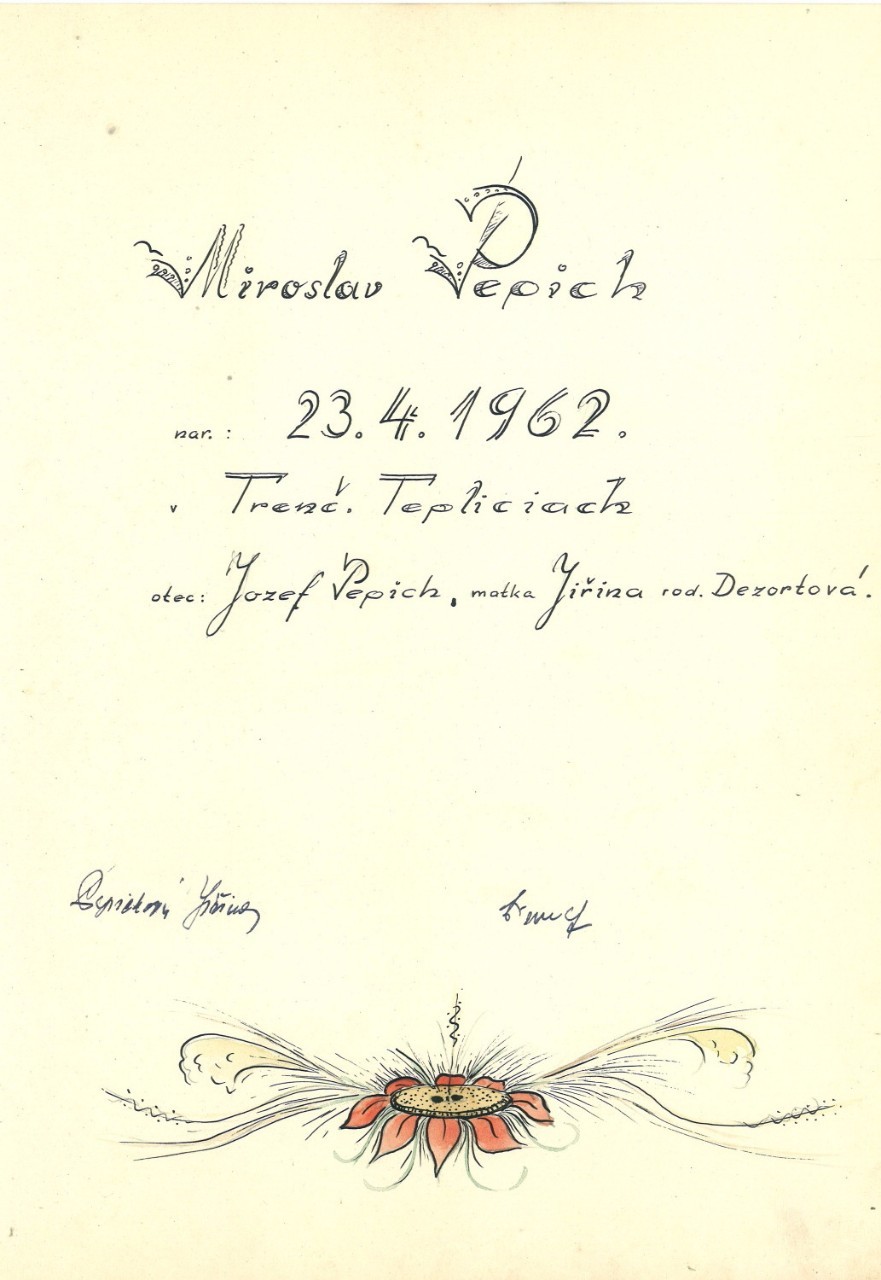 Miroslav Pepich
nar. : 23. 4. 1962.
v Trenč. Tepliciach
otec: Jozef Pepich, matka Jiřina rod. Dezortová.
Pepichová Jiřina